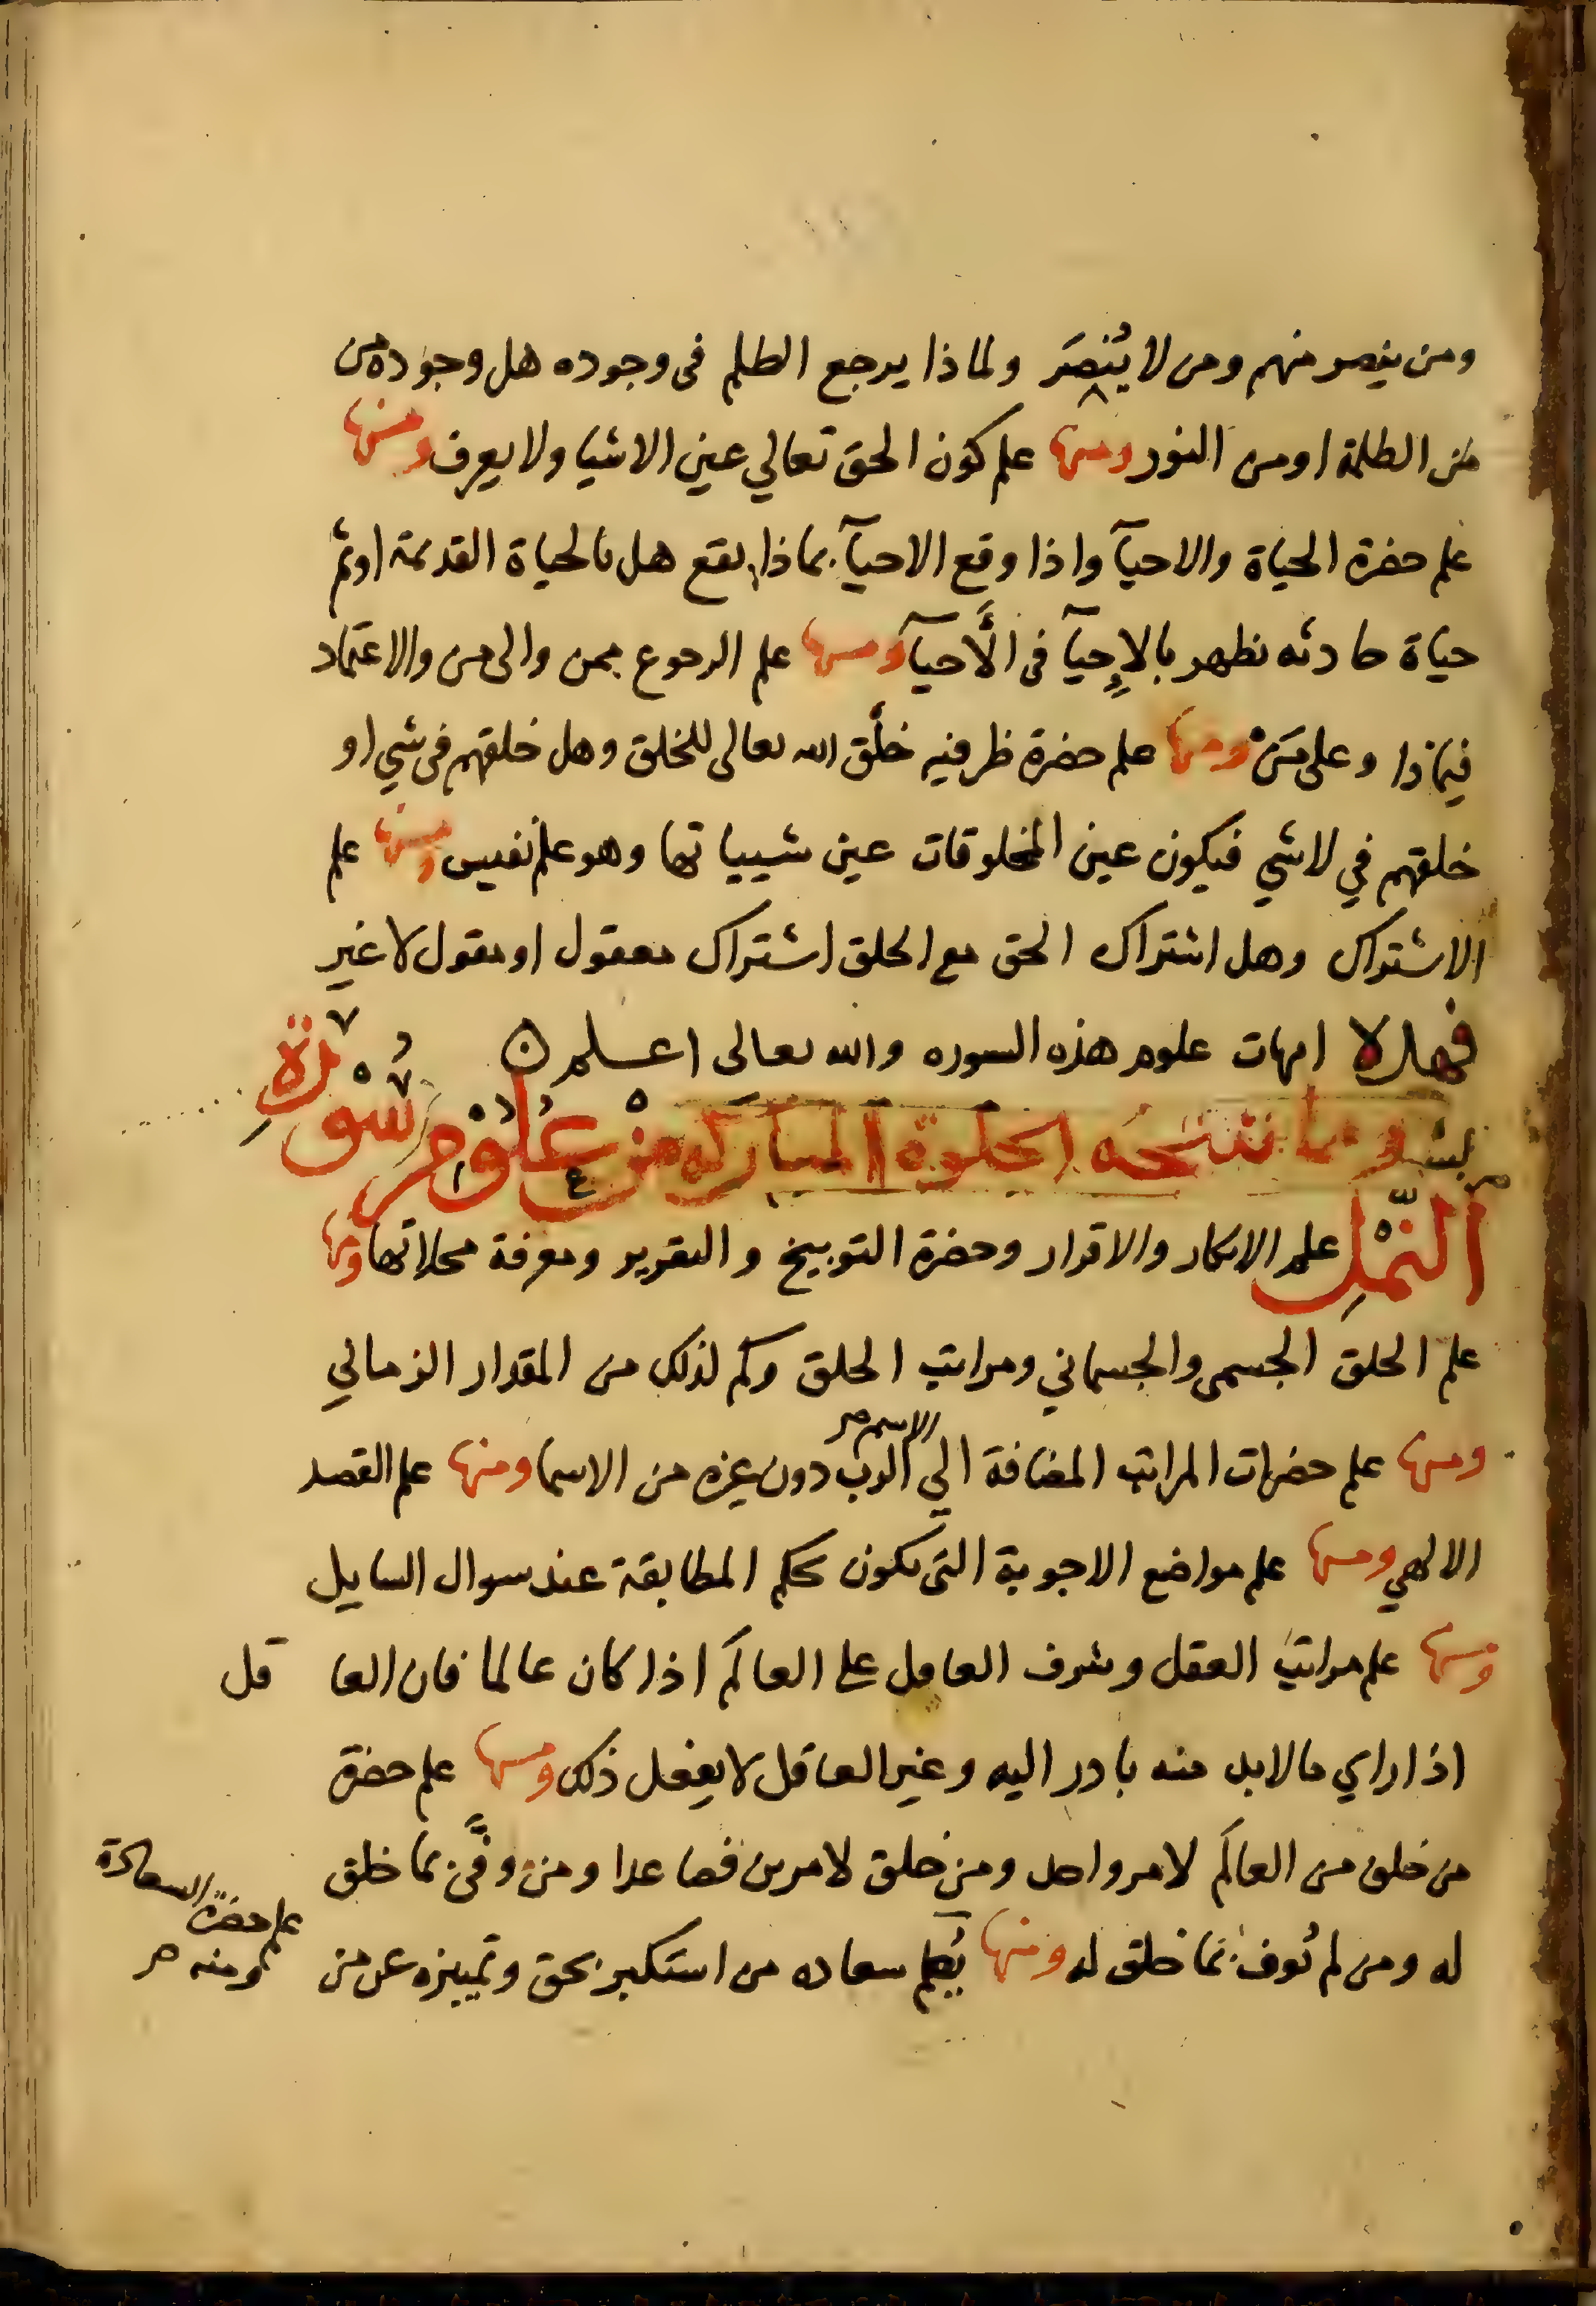 ومن ينصر منهم ومن لا يُنصَر ولماذا يرجع الظلم فى وجوده هل وجوده من
من الظلمة اومن النور ومنها علم كون الحق تعالي عين الاشيا ولا يعرف ومنها
علم حضرة الحياة والاحيآ واذا وقع الاحيآ بماذا يقع هل بالحياة القديمة اوثم
حياة حادثه تظهر بالإِحيآ فى الأَحيآ ومنها علم الرجوع بمن والى من والاعتماد
فيماذا وعلى مَنْ ومنها علم حضرة ظرفيه خلْق الله تعالى للخلق وهل خلقهم فى شي او
خلقهم في لا شي فيكون عين المخلوقات عين شيياتها وهو علم نفيس ومنها علم
الاشتراك وهل اشتراك الحق مع الخلق اشتراك معقول او مقول لا غير
فهذه امهات علوم هذه السوره والله تعالى اعلم
ومما نتيجه الخلوة المباركه من عُلُوْمِ سُوْرَةِ
النَّمْلِ علم الانكار والاقرار وحضرة التوبيخ والتقرير ومعرفة محلاتها ومنها
علم الخلق الجسمى والجسماني ومراتب الخلق وكم لذلك من المقدار الزماني
ومنها علم حضرات المراتب المضافة الي الاسم الرب دون غيره من الاسما ومنها علم القصد
الالهي ومنها علم مواضع الاجوبة التى تكون بحكم المطابقة عند سوال السايل
ومنها علم مراتب العقل وشرف العاقل على العالم اذا كان عالما فان العاقل
اذا راي ما لابد منه بادر اليه وغير العاقل لا يفعل ذلك ومنها علم حضرة
من خلق من العالم لامر واحد ومن خلق لامرين فصاعدا ومن وفَّى بما خلق
له ومن لم يُوف بما خلق له ومنها يُعلم سعاده من استكبر بحق وتمييزه عن من
علم حضرة السعادة
ومنه